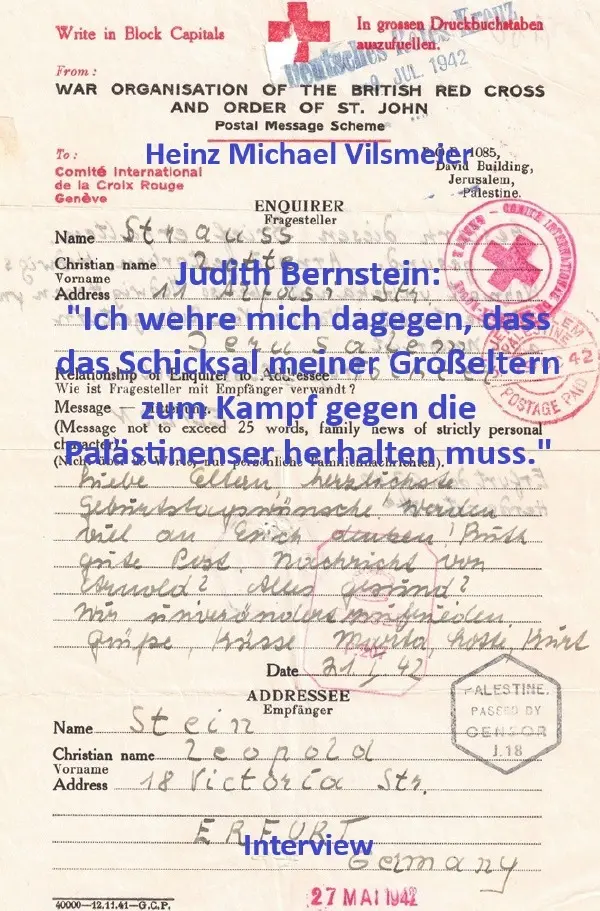 Write in Block Capitals
In grossen Druckbuchstaben
auszufuellen.
Deutsches Rotes Kreuz
JUL. 1942
From:
WAR ORGANISATION OF THE BRITISH RED CROSS
AND ORDER OF ST. JOHN
Postal Message Scheme
To:
Comité International
de la Croix Rouge
Genève
Heinz Michael Vilsmeier
1085,
David Building,
Jerusalem,
Palestine.
ENQUIRER
Fragesteller
Name Strauss
Christian name
Vorname
Address 11 Str.
Jerusalem
Judith Bernstein:
"Ich wehre mich dagegen, dass
das Schicksal meiner Großeltern
zum Kampf gegen die
Palästinenser herhalten muss."
Relationship of Enquirer to Addressee
Wie ist Fragesteller mit Empfänger verwandt?
Message
(Message not to exceed 25 words, family news of strictly personal
character).
(Nicht über 25 Worte, nur persönliche Familiennachrichten).
Liebe Eltern, herzlichste
Geburtstagswünsche. Werden
viel an Erich denken! Ruth
gute Post. Nachricht von
Arnold? Alles gesund?
Wir unverändert zufrieden.
Grüße, Küsse Lotte, Kurt
Date 42
POSTAGE PAID
PALESTINE.
PASSED BY
CENSOR
J.18
ADDRESSEE
Empfänger
Name Stein
Christian name Leopold
Vorname
Address 18 Victoria Str.
ERFURT
Germany
Interview
40000—12.11.41—G.C.P.
27 MAI 1942